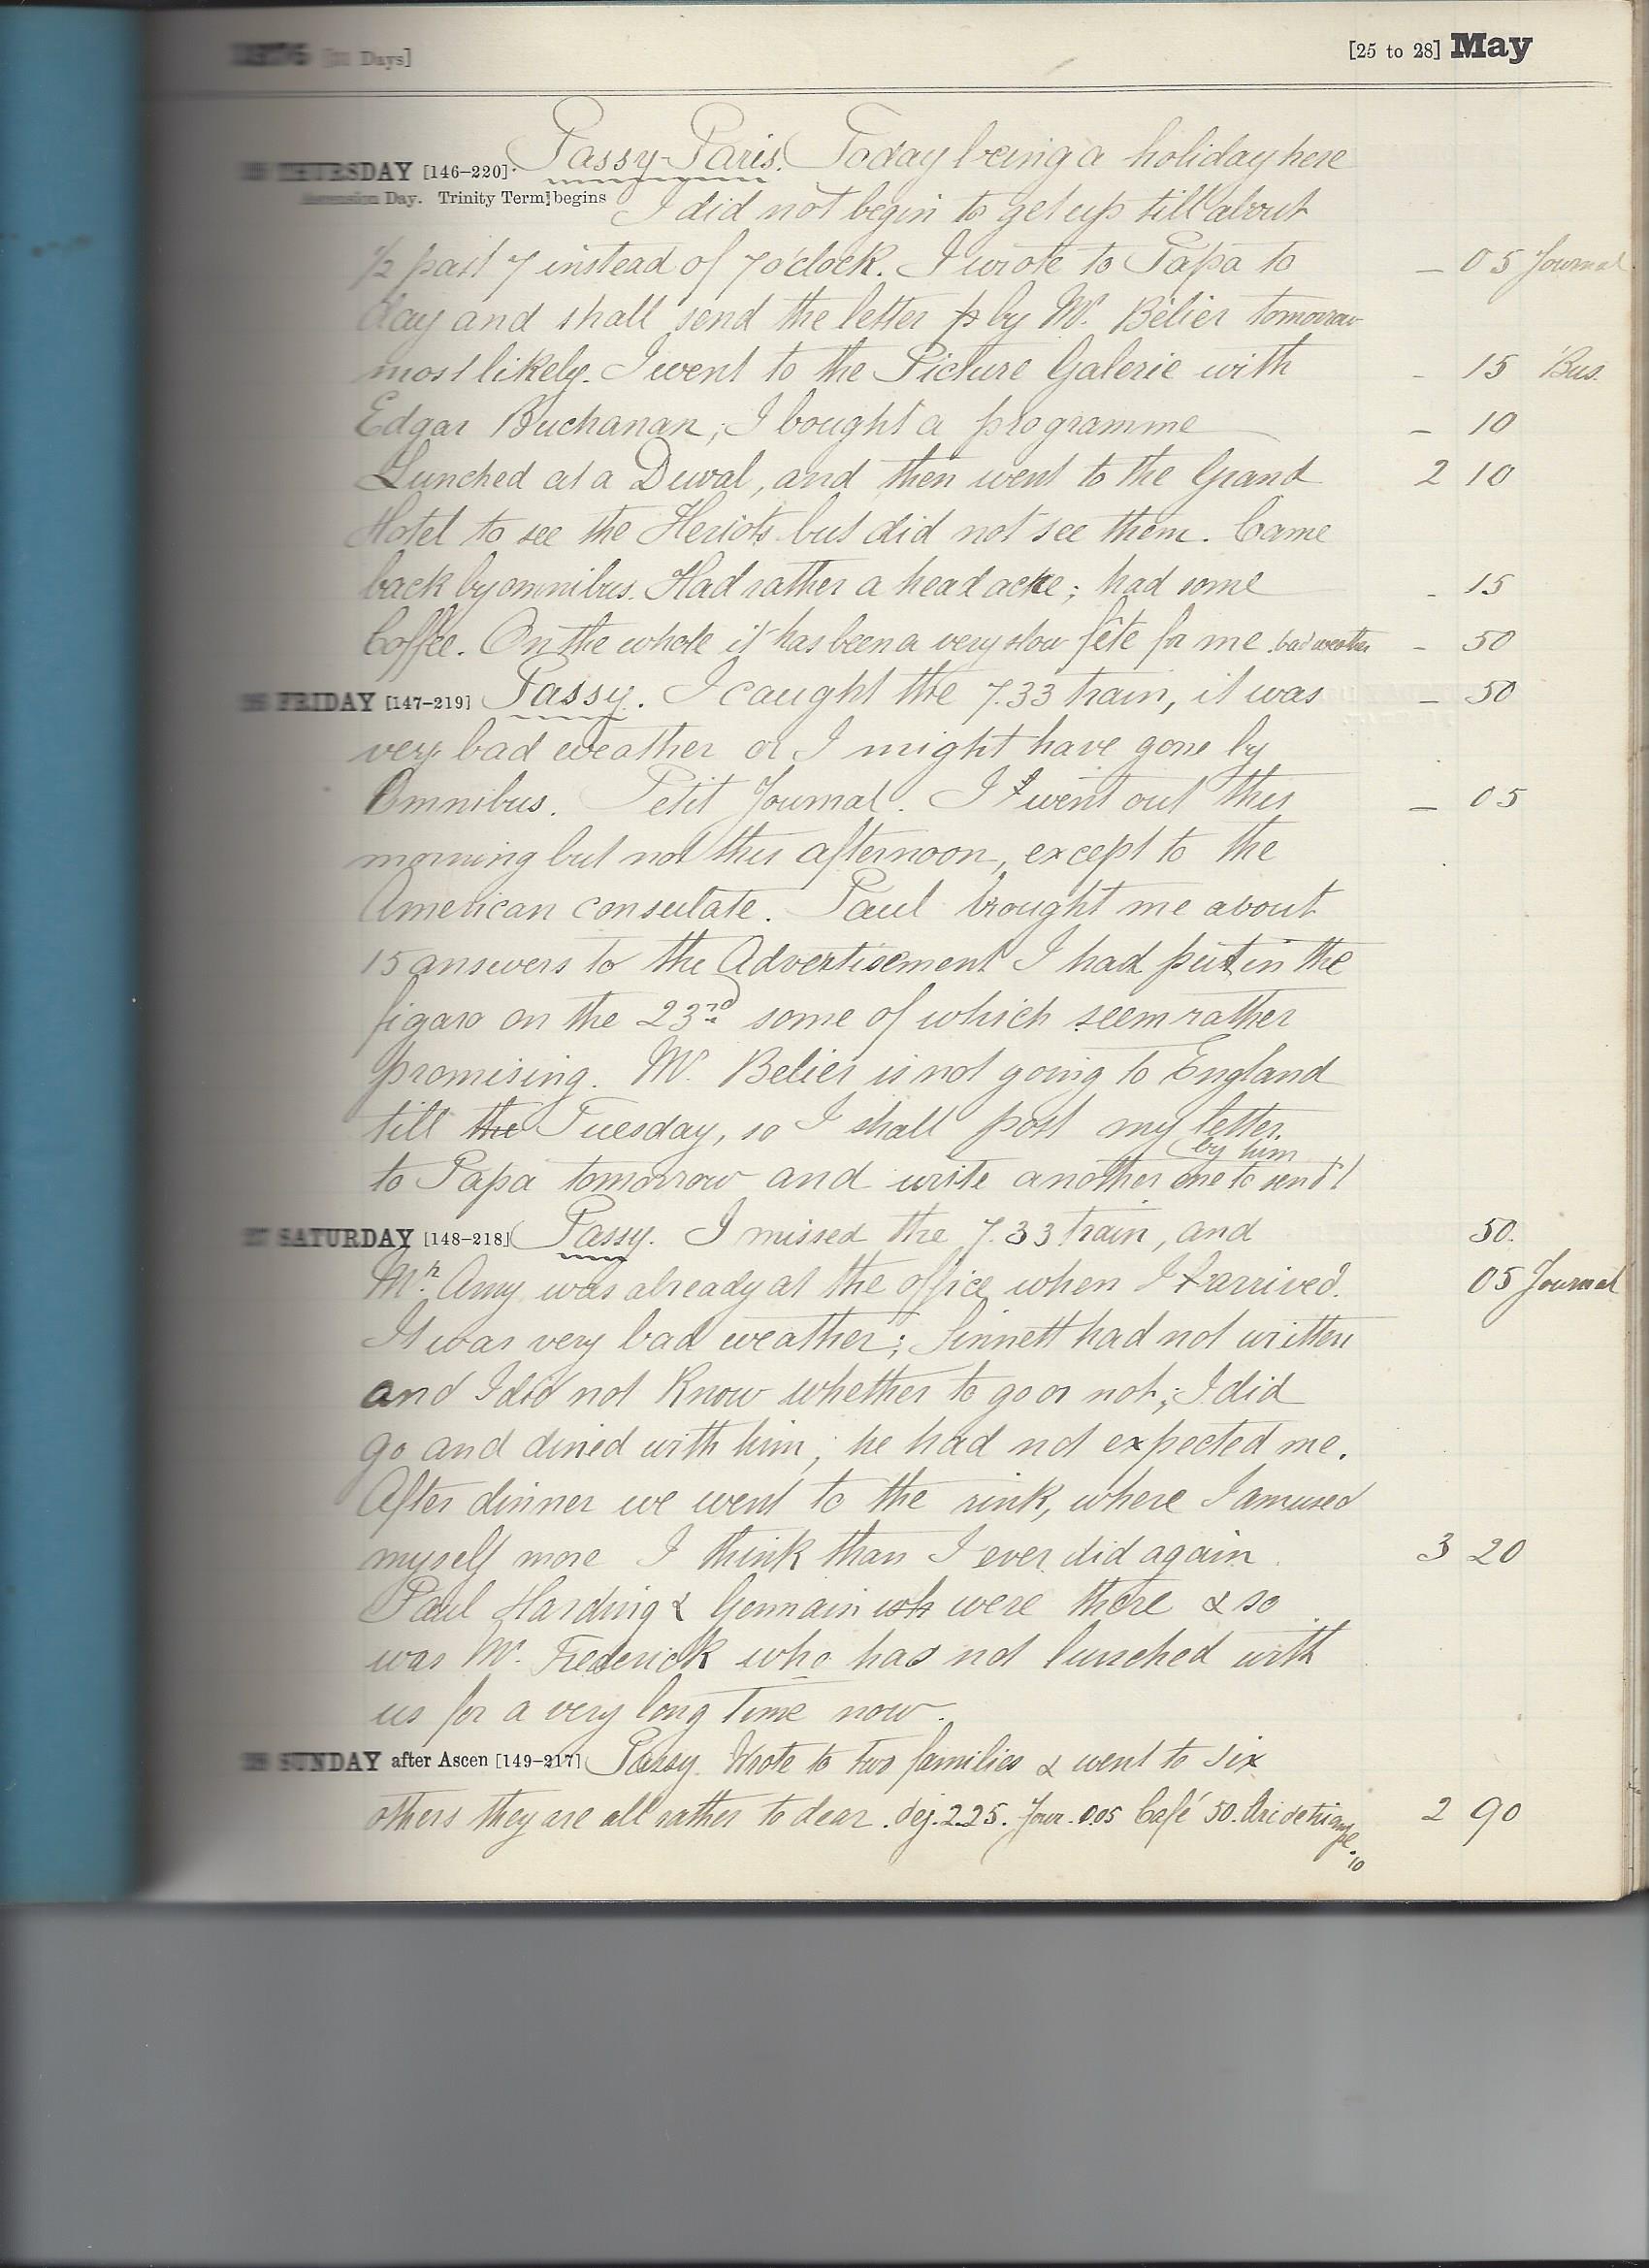 1876 [31 Days] [25 to 28] May
25 THURSDAY [146-220]. Passy-Paris. Today being a holiday here
Ascension Day. Trinity Term begins I did not begin to get up till about
½ past 7 instead of 7 o'clock. I wrote to Papa to — 05 Journal
day and shall send the letter p by Mr. Bélier tomorrow
most likely. I went to the Picture Galerie with - 15 Bus.
Edgar Buchanan; I bought a programme — 10
Lunched at a Duval, and then went to the Grand 2 10
Hotel to see the Heriots but did not see them. Came
back by omnibus. Had rather a head ache; had some - 15
Coffee. On the whole it has been a very slow fête for me. bad weather - 50
26 FRIDAY [147-219] Passy. I caught the 7.33 train, it was — 50
very bad weather or I might have gone by
Omnibus. Petit Journal. I went out this — 05
morning but not this afternoon, except to the
American consulate. Paul brought me about
15 answers to the Advertisement I had put in the
figaro on the 23rd some of which seem rather
promising. Mr. Belier is not going to England
till the Tuesday, so I shall post my letter
by him
to Papa tomorrow and write another one to send
27 SATURDAY [148-218] Passy. I missed the 7.33 train, and 50.
Mr. Amy was already at the office when I arrived. 05 Journal
It was very bad weather; Sinnett had not written
and I did not know whether to go or not; I did
go and dined with him; he had not expected me.
After dinner we went to the rink, where I amused
myself more I think than I ever did again. 3 20
Paul Harding & Germain wh were there & so
was Mr. Frederick who has not lunched with
us for a very long time now.
28 SUNDAY after Ascen [149-217] Passy. Wrote to two families & went to six
others they are all rather to dear. dej. 2.25. Jour. 0.05 Café 50. Arc de triomphe. 10 2 90